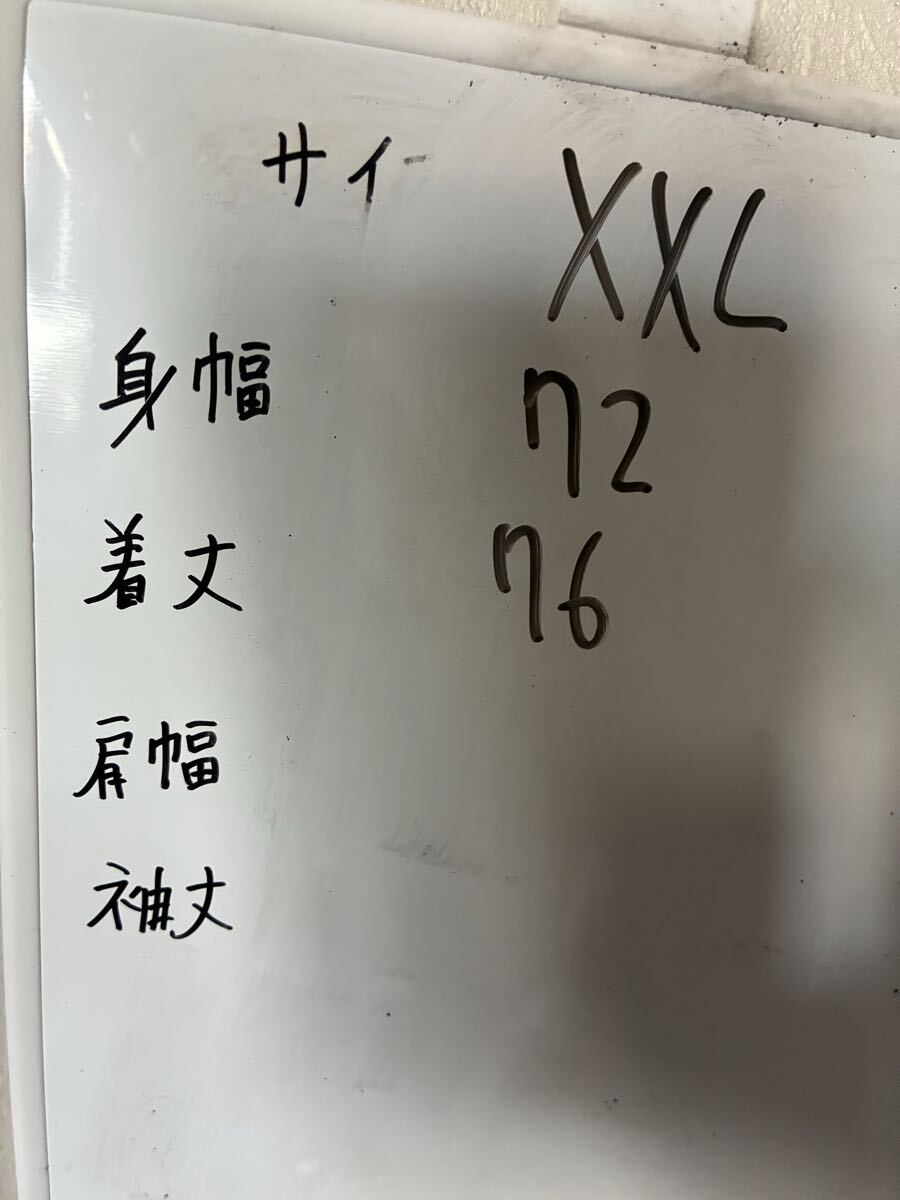 サイ XXL
身幅 72
着丈 76
肩幅
袖丈